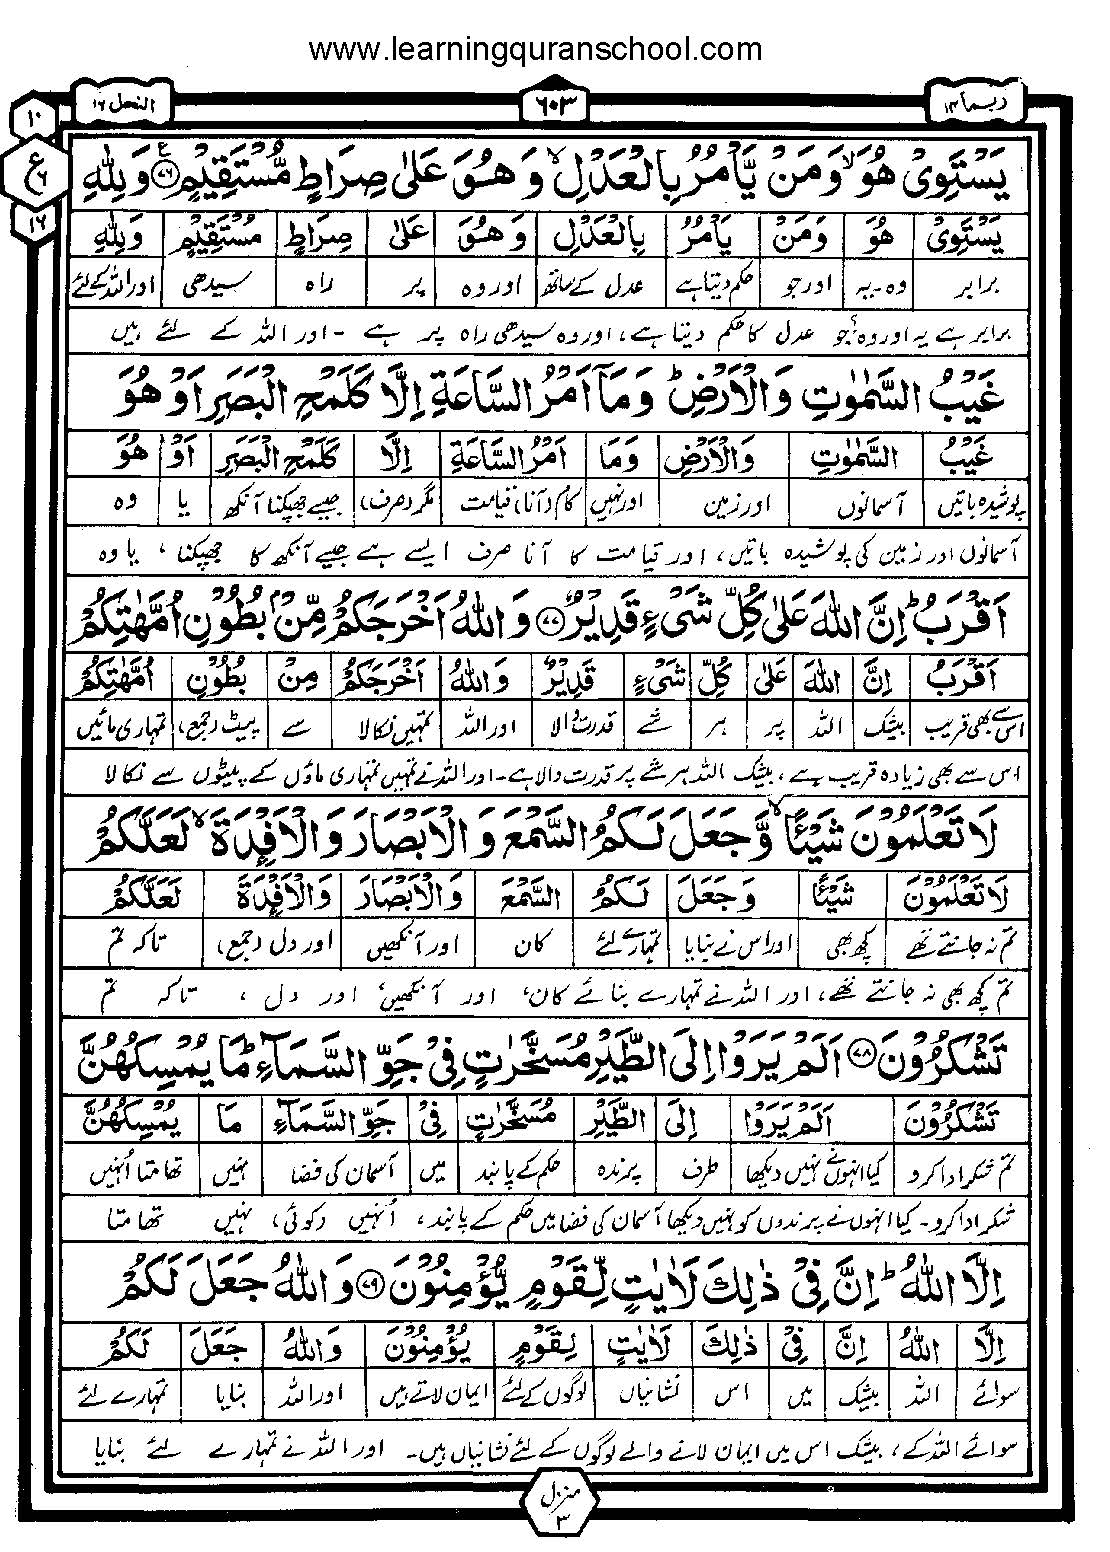 www.learningquranschool.com
ربما ۱۴
۶۰۳
النحل ۱۶
۱۰
ع
۶
۱۶
يَسْتَوِىْ هُوَ ۙ وَمَنْ يَّاْمُرُ بِالْعَدْلِ ۙ وَهُوَ عَلٰى صِرَاطٍ مُّسْتَقِيْمٍ ﴿۷۶﴾ ع وَلِلّٰهِ
يَسْتَوِىْ هُوَ وَمَنْ يَاْمُرُ بِالْعَدْلِ وَهُوَ عَلٰى صِرَاطٍ مُسْتَقِيْمٍ وَلِلّٰهِ
برابر وہ۔یہ اور جو حکم دیتا ہے عدل کے ساتھ اور وہ پر راہ سیدھی اور اللہ کے لئے
برابر ہے یہ اور وہ جو عدل کا حکم دیتا ہے، اور وہ سیدھی راہ پر ہے - اور اللہ کے لئے ہیں
غَيْبُ السَّمٰوٰتِ وَالْاَرْضِ ؕ وَمَآ اَمْرُ السَّاعَةِ اِلَّا كَلَمْحِ الْبَصَرِ اَوْ هُوَ
غَيْبُ السَّمٰوٰتِ وَالْاَرْضِ وَمَا اَمْرُ السَّاعَةِ اِلَّا كَلَمْحِ الْبَصَرِ اَوْ هُوَ
پوشیدہ باتیں آسمانوں اور زمین اور نہیں کام (آنا) قیامت مگر (صرف) جیسے جھپکنا آنکھ یا وہ
آسمانوں اور زمین کی پوشیدہ باتیں، اور قیامت کا آنا صرف ایسے ہے جیسے آنکھ کا جھپکنا، یا وہ
اَقْرَبُ ؕ اِنَّ اللّٰهَ عَلٰى كُلِّ شَىْءٍ قَدِيْرٌ ﴿۷۷﴾ وَاللّٰهُ اَخْرَجَكُمْ مِّنْۢ بُطُوْنِ اُمَّهٰتِكُمْ
اَقْرَبُ اِنَّ اللّٰهَ عَلٰى كُلِّ شَىْءٍ قَدِيْرٌ وَاللّٰهُ اَخْرَجَكُمْ مِنْ بُطُوْنِ اُمَّهٰتِكُمْ
اس سے بھی قریب بیشک اللہ پر ہر شے قدرت والا اور اللہ تمہیں نکالا سے پیٹ (جمع) تمہاری مائیں
اس سے بھی زیادہ قریب ہے، بیشک اللہ ہر شے پر قدرت والا ہے۔ اور اللہ نے تمہیں تمہاری ماؤں کے پیٹوں سے نکالا
لَا تَعْلَمُوْنَ شَيْئًا ۙ وَّجَعَلَ لَكُمُ السَّمْعَ وَالْاَبْصَارَ وَالْاَفْـِٕدَةَ ۙ لَعَلَّكُمْ
لَا تَعْلَمُوْنَ شَيْئًا وَجَعَلَ لَكُمُ السَّمْعَ وَالْاَبْصَارَ وَالْاَفْـِٕدَةَ لَعَلَّكُمْ
تم نہ جانتے تھے کچھ بھی اور اس نے بنایا تمہارے لئے کان اور آنکھیں اور دل (جمع) تاکہ تم
تم کچھ بھی نہ جانتے تھے، اور اللہ نے تمہارے بنائے کان، اور آنکھیں، اور دل، تاکہ تم
تَشْكُرُوْنَ ﴿۷۸﴾ اَلَمْ يَرَوْا اِلَى الطَّيْرِ مُسَخَّرٰتٍ فِىْ جَوِّ السَّمَآءِ ؕ مَا يُمْسِكُهُنَّ
تَشْكُرُوْنَ اَلَمْ يَرَوْا اِلَى الطَّيْرِ مُسَخَّرٰتٍ فِىْ جَوِّ السَّمَآءِ مَا يُمْسِكُهُنَّ
تم شکر ادا کرو کیا انہوں نے نہیں دیکھا طرف پرندہ حکم کے پابند میں آسمان کی فضا نہیں تھامتا انہیں
شکر ادا کرو۔ کیا انہوں نے پرندوں کو نہیں دیکھا آسمان کی فضا میں حکم کے پابند، انہیں (کوئی) نہیں تھامتا
اِلَّا اللّٰهُ ؕ اِنَّ فِىْ ذٰلِكَ لَاٰيٰتٍ لِّقَوْمٍ يُّؤْمِنُوْنَ ﴿۷۹﴾ وَاللّٰهُ جَعَلَ لَكُمْ
اِلَّا اللّٰهُ اِنَّ فِىْ ذٰلِكَ لَاٰيٰتٍ لِقَوْمٍ يُؤْمِنُوْنَ وَاللّٰهُ جَعَلَ لَكُمْ
سوائے اللہ بیشک میں اس نشانیاں لوگوں کے لئے ایمان لاتے ہیں اور اللہ بنایا تمہارے لئے
سوائے اللہ کے، بیشک اس میں ایمان لانے والے لوگوں کے لئے نشانیاں ہیں۔ اور اللہ نے تمہارے لئے بنایا
منزل
۳